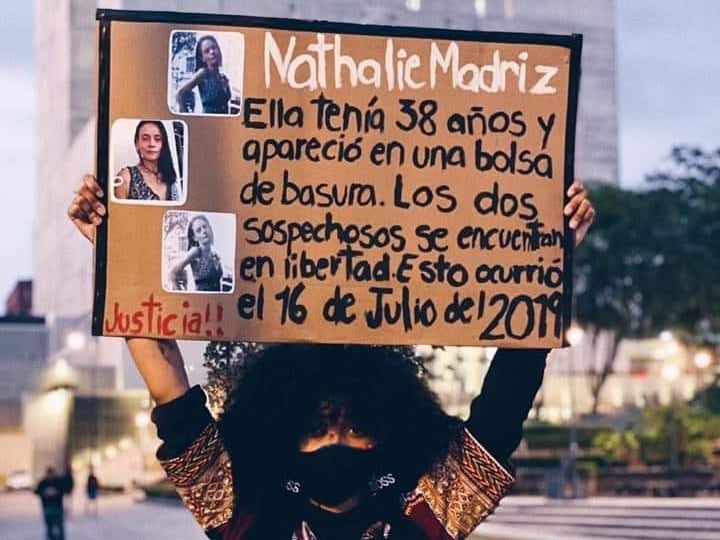 Nathalie Madriz
Ella tenía 38 años y
apareció en una bolsa
de basura. Los dos
sospechosos se encuentran
en libertad. Esto ocurrió
el 16 de Julio del 2019
Justicia!!